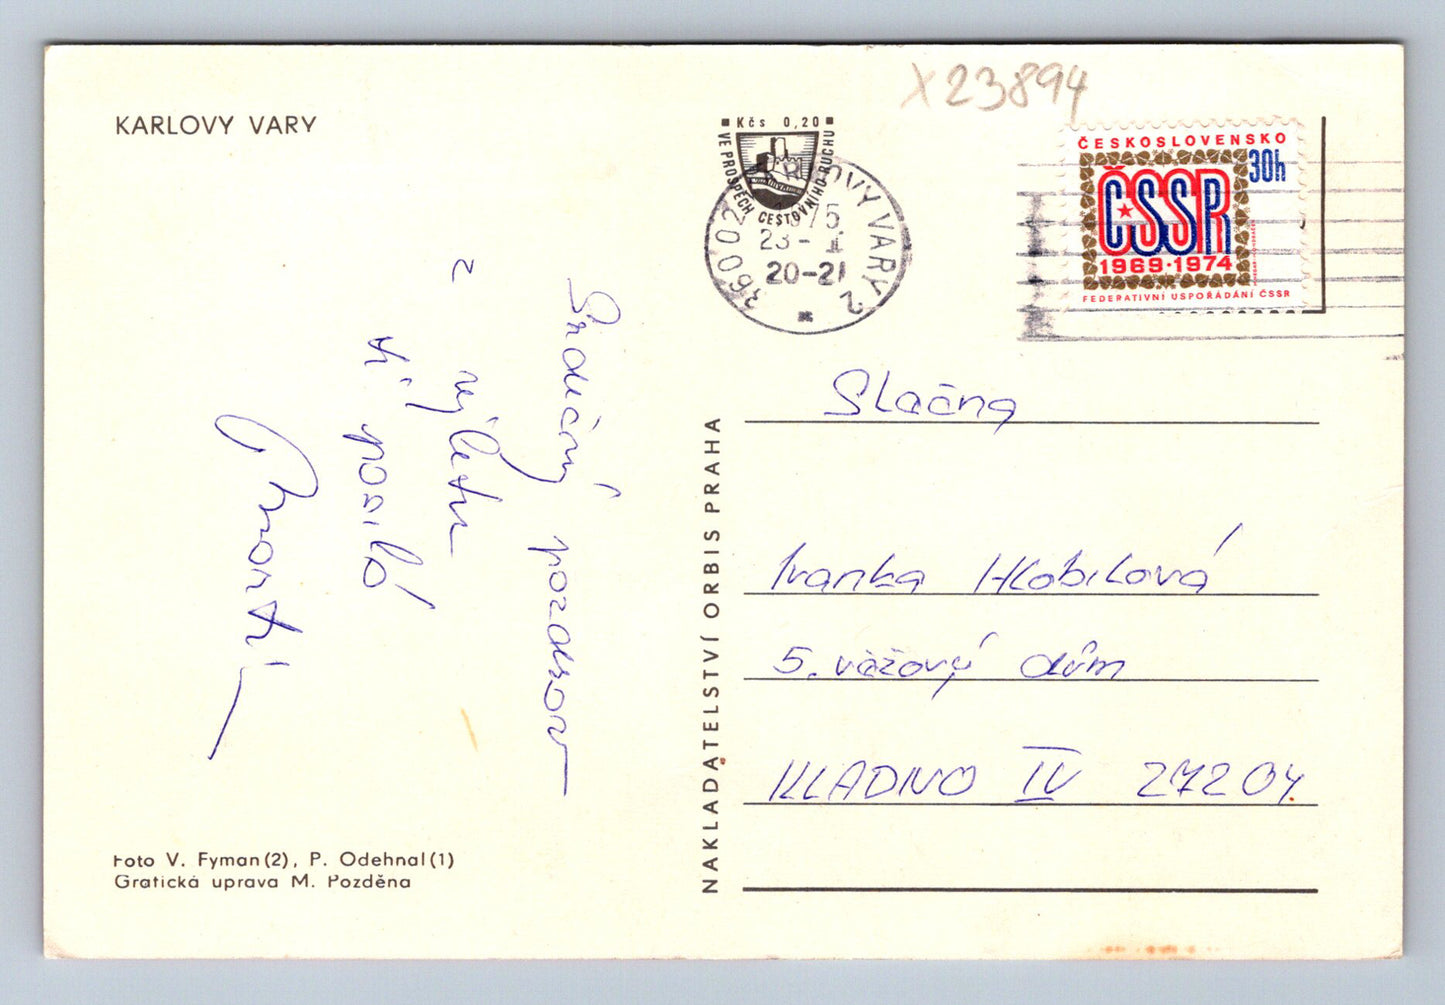 X23894
KARLOVY VARY
Kčs 0,20
VE PROSPĚCH CESTOVNÍHO RUCHU
36002 KARLOVY VARY 2
1975
23-
20-21
ČESKOSLOVENSKO
30h
ČSSR
1969·1974
FEDERATIVNÍ USPOŘÁDÁNÍ ČSSR
Srdečný pozdrav
z výletu
posílá
Slečna
Ivanka Hlobilová
5. věžový dům
KLADNO IV 27204.
NAKLADATELSTVÍ ORBIS PRAHA
Foto V. Fyman(2), P. Odehnal(1)
Grafická úprava M. Pozděna